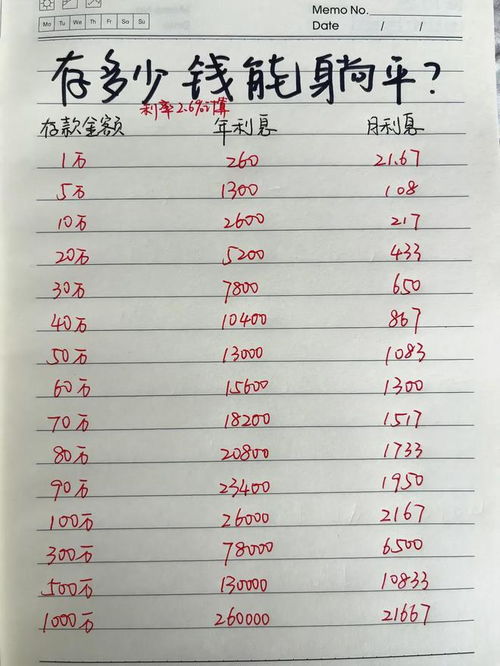 Memo No.
Mo Tu We Th Fr Sa Su
Date / /
存多少钱能躺平?
利率2.6%计算
存款金额 年利息 月利息
1万 260 21.67
5万 1300 108
10万 2600 217
20万 5200 433
30万 7800 650
40万 10400 867
50万 13000 1083
60万 15600 1300
70万 18200 1517
80万 20800 1733
90万 23400 1950
100万 26000 2167
300万 78000 6500
500万 130000 10833
1000万 260000 21667